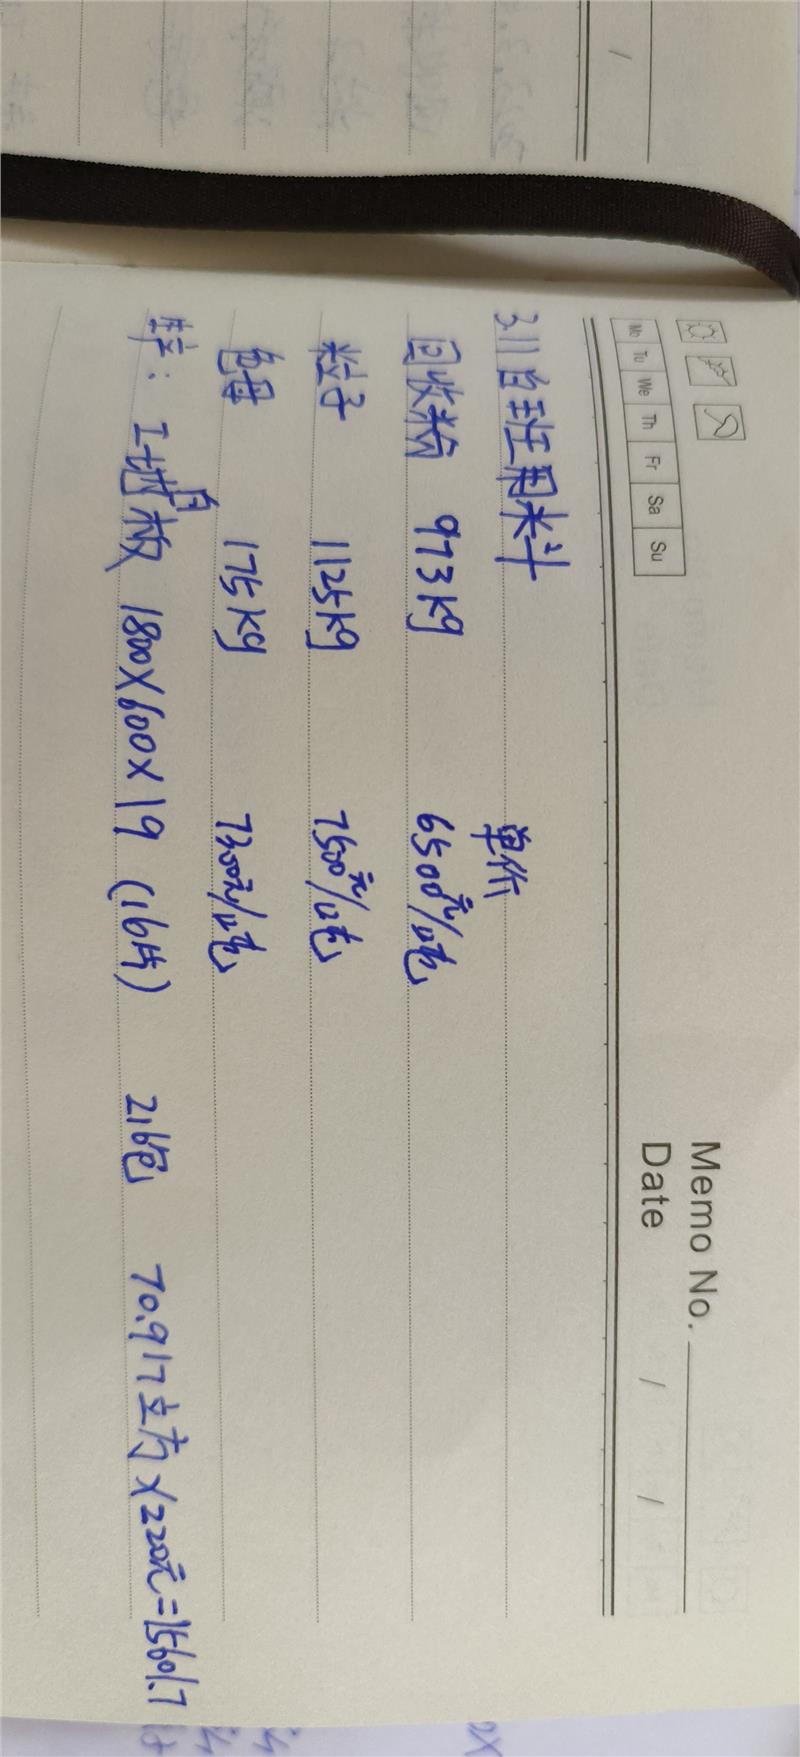 Memo No.
Mo Tu We Th Fr Sa Su
Date / /
3.11白班用米斗
单价
回收粉 973kg 6500元/吨
粒子 1125kg 7500元/吨
色母 175kg 7300元/吨
: 地板 1800×600×19 (16片) 216包 70.917立方×220元=15601.7
白